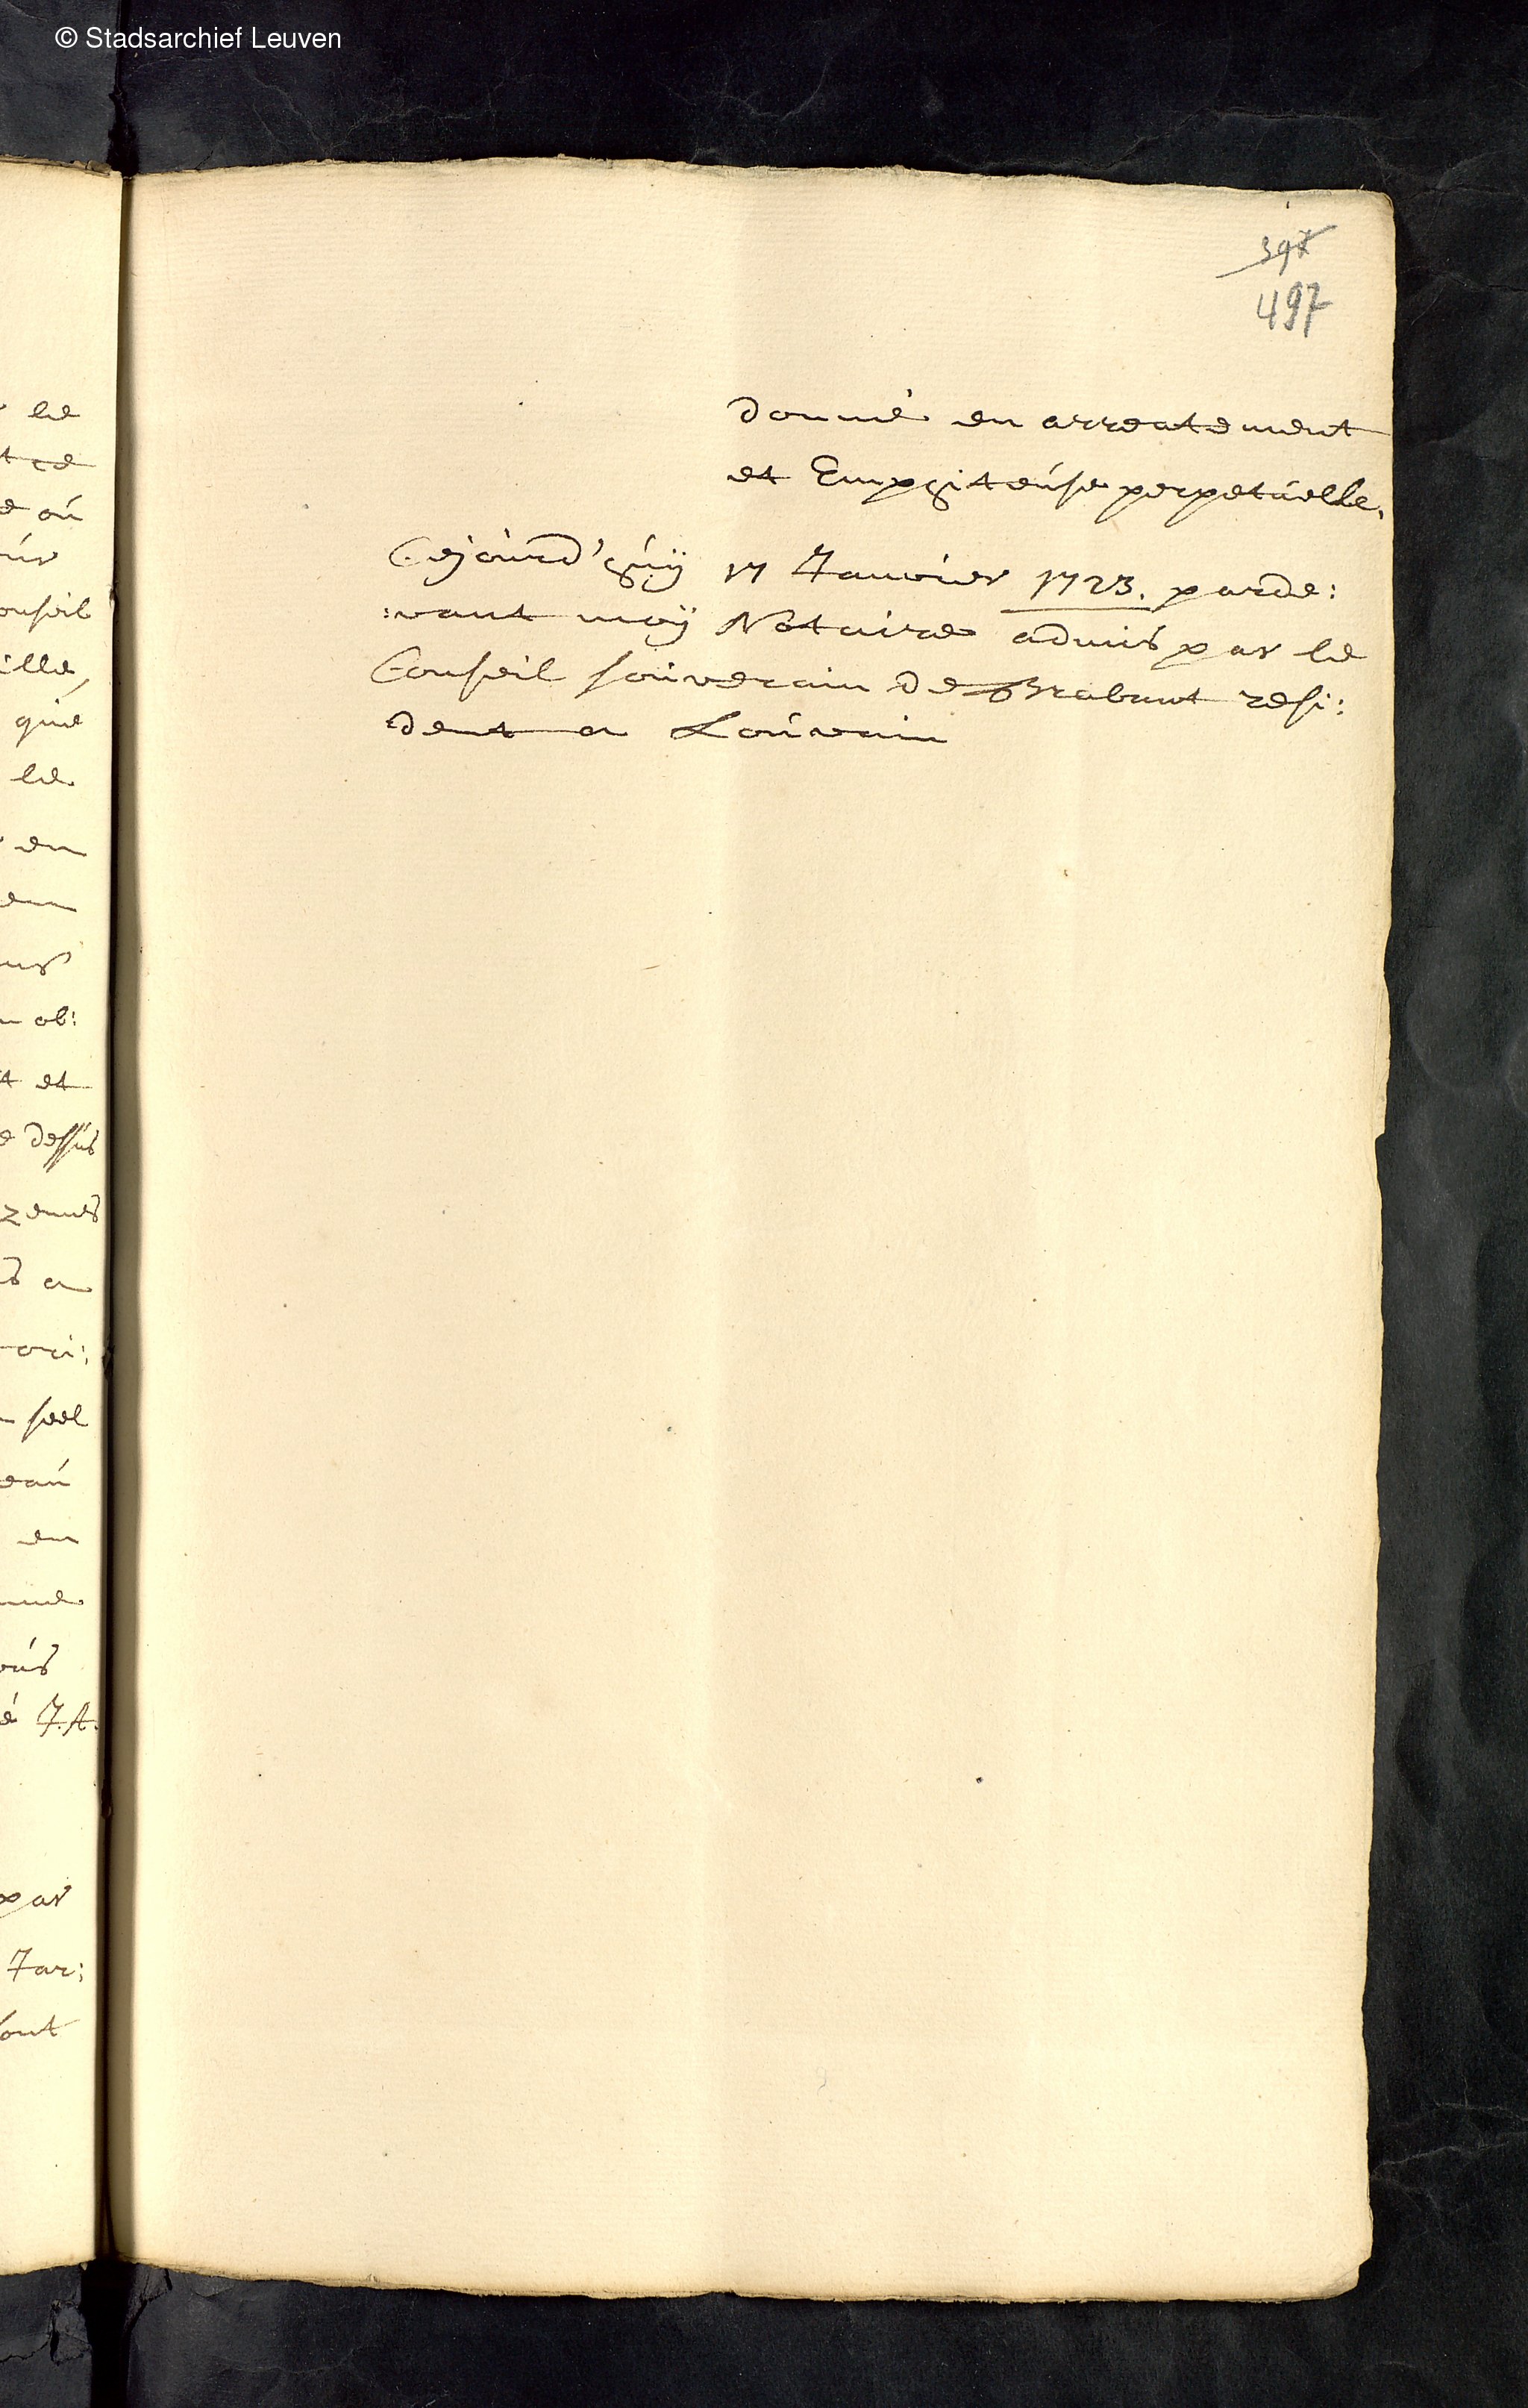 © Stadsarchief Leuven
397
497
donné en arrentement
et Emphiteúse perpetúelle.
Cejoúrd'húÿ 17 Janvier 1723. parde:
:vant moÿ Notaire admis par le
Conseil soúverain de Brabant resi:
dent a Loúvain
le
t ce
e oú
onseil
ille,
qúe
le
en
en
ob:
t et
e dessús
zemes
s a
ori:
seel
eaú
en
é J.A.
par
Jar: